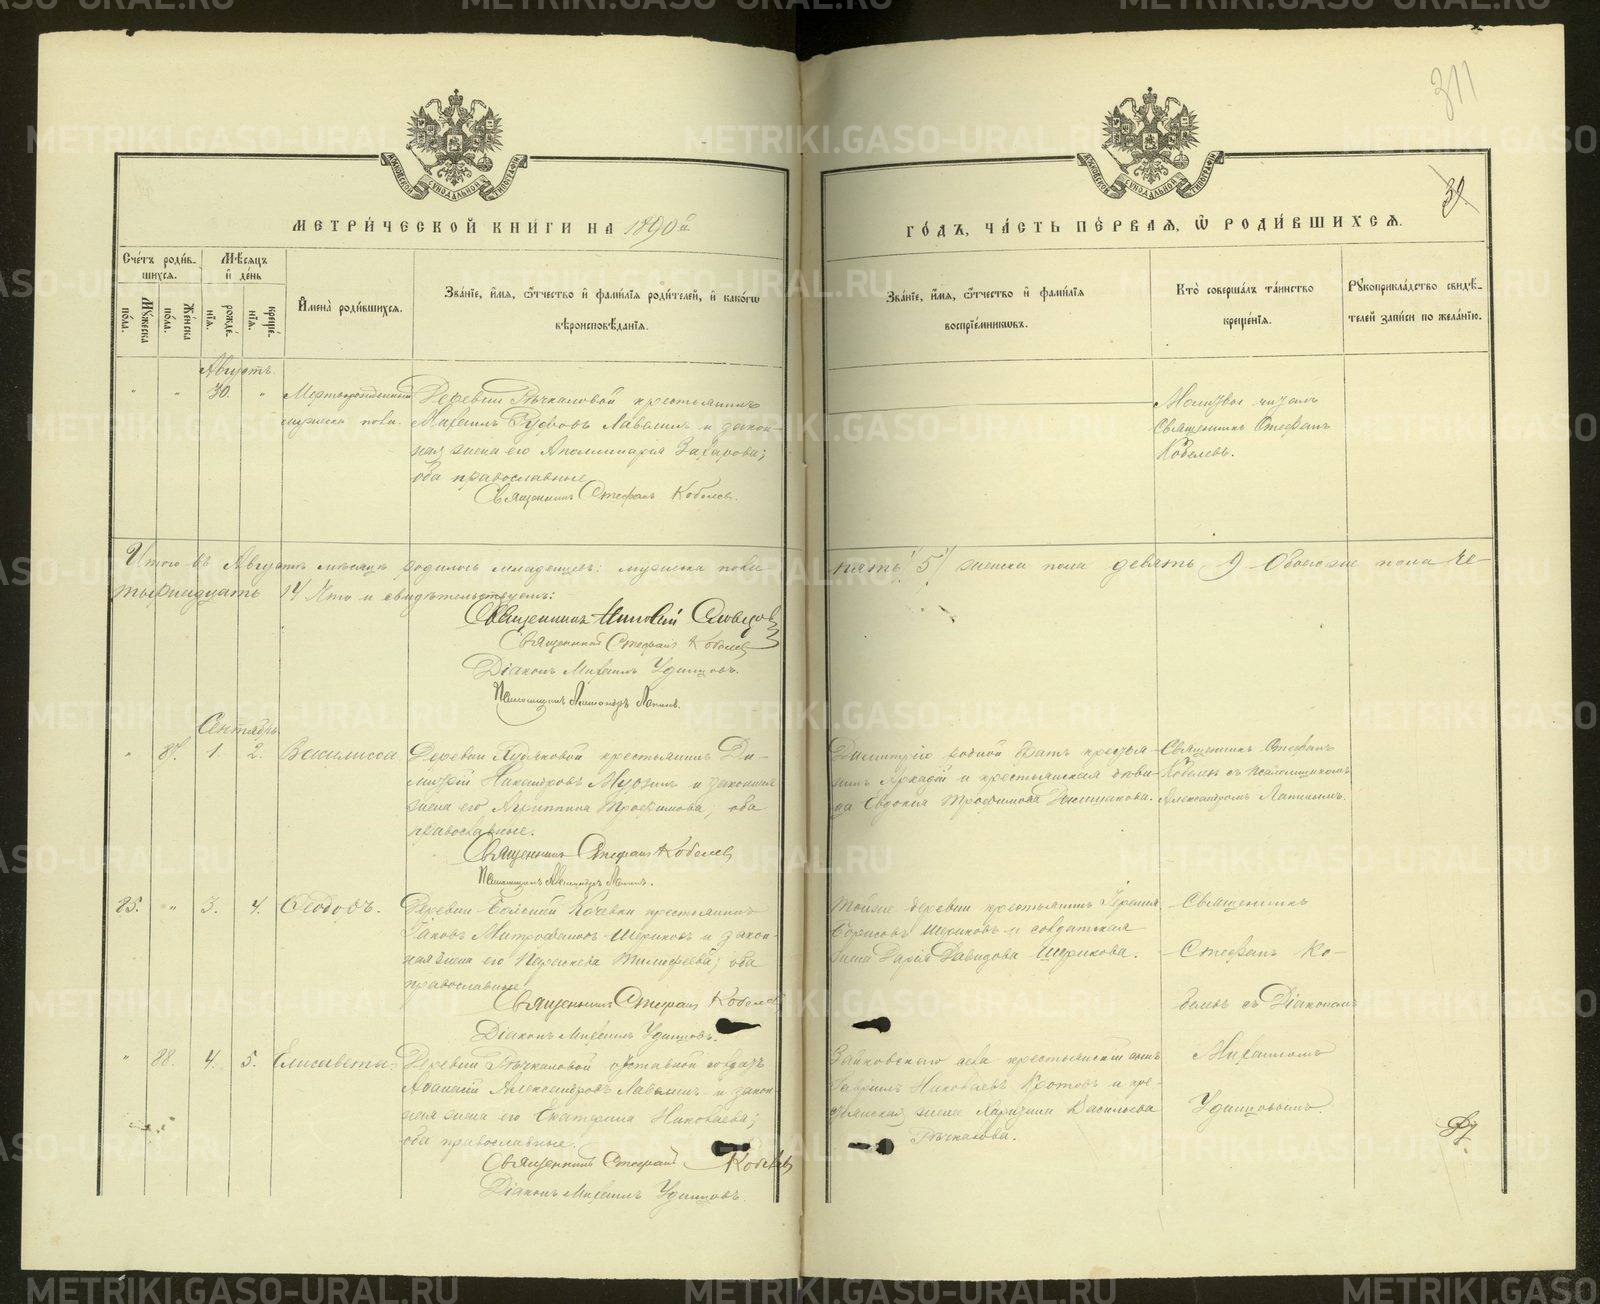 311
39
МЕТРИ́ЧЕСКОЙ КНИ́ГИ НА 1890й
ГО́ДЪ, ЧА́СТЬ ПЕ́РВАЯ, Ѽ РОДИ́ВШИХСЯ.
Сче́тъ роди́в-
шихся.
Мѣ́сяцъ
и де́нь
Мꙋ́жеска
по́ла.
Же́нска
по́ла.
рожде́-
нїя.
креще́-
нїя.
Имена̀ роди́вшихся.
Зва́нїе, и́мя, ѻ́тчество и фами́лїя роди́телей, и како́гѡ
вѣроисповѣ́данїя.
Зва́нїе, и́мя, ѻ́тчество и фами́лїя
воспрїе́мникѡвъ.
Кто̀ соверша́лъ та́инство
креще́нїя.
Рꙋкоприкла́дство свидѣ́-
телей за́писи по жела́нїю.
Августъ.
" " 30. "
Мертворожденный
мужеска пола.
Деревни Рычкаловой крестьянинъ
Михаилъ Руфовъ и закон-
ная жена его Аполлинария Захарова;
оба православные
Священникъ Стефанъ Кобелевъ.
Молитвы читалъ
Священникъ Стефанъ
Кобелевъ.
Итого въ Августѣ мѣсяцѣ родилось младенцевъ: мужеска пола
пять "5" женска пола девять 9 Обоего же пола че-
тырнадцать 14 Что и свидѣтельствуемъ:
Священникъ
Священникъ Стефанъ Кобелевъ
Діаконъ Михаилъ Удинцовъ.
Псаломщикъ Александръ Лапинъ.
Сентябрь
" 87. 1. 2. Василисса
Деревни крестьянинъ Ди-
митрій Никандровъ и законная
жена его Агриппина Трофимова; оба
православные.
Священникъ Стефанъ Кобелевъ
Псаломщикъ Александръ Лапинъ.
Димитрію родной братъ крестья-
нинъ Аркадій и крестьянская дѣви-
ца Евдокія Трофимова
Священникъ Стефанъ
Кобелевъ съ Псаломщикомъ
Александромъ Лапинымъ.
85. " 3. 4. Ѳеодоръ.
Деревни Кочевки крестьянинъ
Іаковъ Митрофановъ Шориковъ и закон-
ная жена его Параскева Тимофеева; оба
православные
Священникъ Стефанъ Кобелевъ
Діаконъ Михаилъ Удинцовъ.
Тойже деревни крестьянинъ
Борисовъ Шориковъ и солдатская
жена Дарія Давидова Шорикова.
Священникъ
Стефанъ Ко-
белевъ съ Діакономъ
" 88. 4. 5. Елисавета.
Деревни Рычкаловой отставной солдатъ
Аѳанасій Александровъ и закон-
ная жена его Екатерина Николаева;
оба православные.
Священникъ Стефанъ Кобелевъ
Діаконъ Михаилъ Удинцовъ.
Зайковскаго села крестьянскій сынъ
Гавріилъ Николаевъ Кротовъ и кре-
стьянская жена Васильева
Рычкалова.
Михаиломъ
Удинцовымъ.